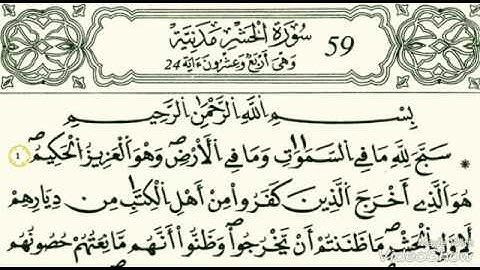 59 سُورَةُ الْحَشْرِ مَدَنِيَّة
وَهِيَ أَرْبَعٌ وَعِشْرُونَ ءَايَة 24
بِسْمِ اللَّهِ الرَّحْمَٰنِ الرَّحِيمِ
* سَبَّحَ لِلَّهِ مَا فِي السَّمَٰوَٰتِ وَمَا فِي الْأَرْضِ وَهُوَ الْعَزِيزُ الْحَكِيمُ
هُوَ الَّذِي أَخْرَجَ الَّذِينَ كَفَرُوا مِنْ أَهْلِ الْكِتَٰبِ مِن دِيَٰرِهِمْ
لِأَوَّلِ الْحَشْرِ مَا ظَنَنتُمْ أَنْ يَخْرُجُوا وَظَنُّوا أَنَّهُم مَّانِعَتُهُمْ حُصُونُهُم
VideoShow